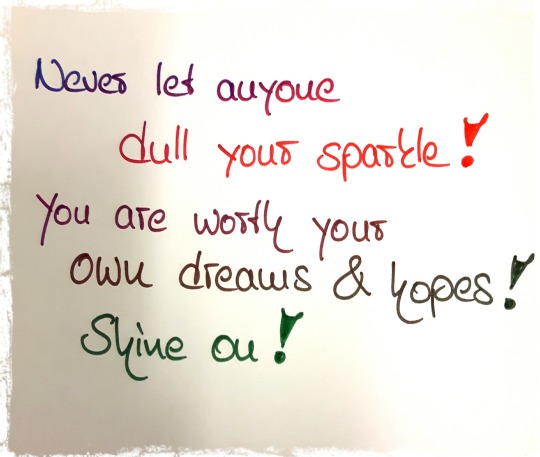 Never let anyone
dull your sparkle!
You are worth your
own dreams & hopes!
Shine on!